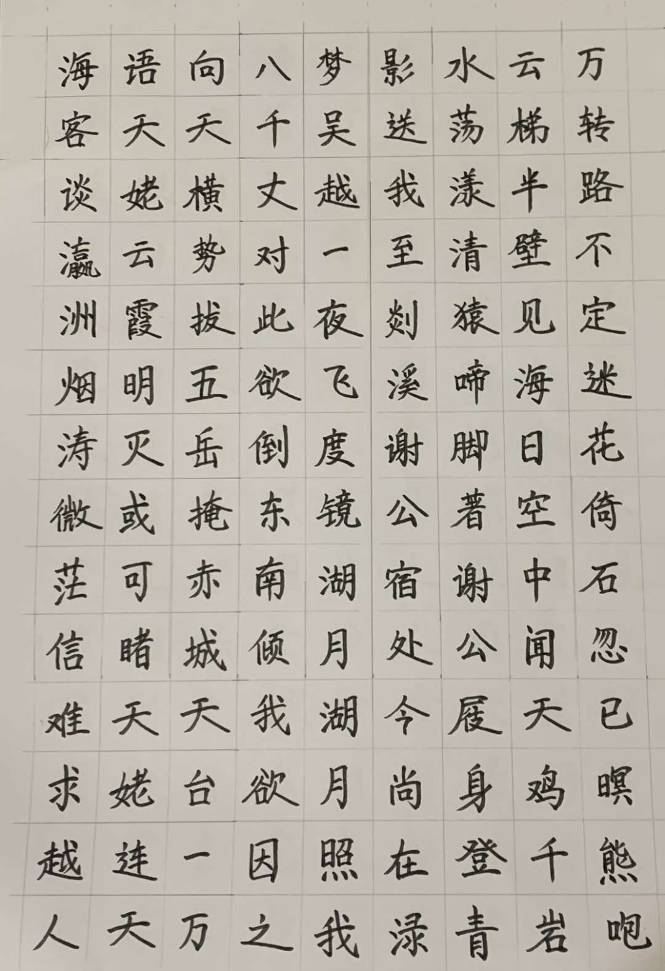 海客谈瀛洲烟涛微茫信难求越人
语天姥云霞明灭或可睹天姥连天
向天横势拔五岳掩赤城天台一万
八千丈对此欲倒东南倾我欲因之
梦吴越一夜飞度镜湖月湖月照我
影送我至剡溪谢公宿处今尚在渌
水荡漾清猿啼脚著谢公屐身登青
云梯半壁见海日空中闻天鸡千岩
万转路不定迷花倚石忽已暝熊咆